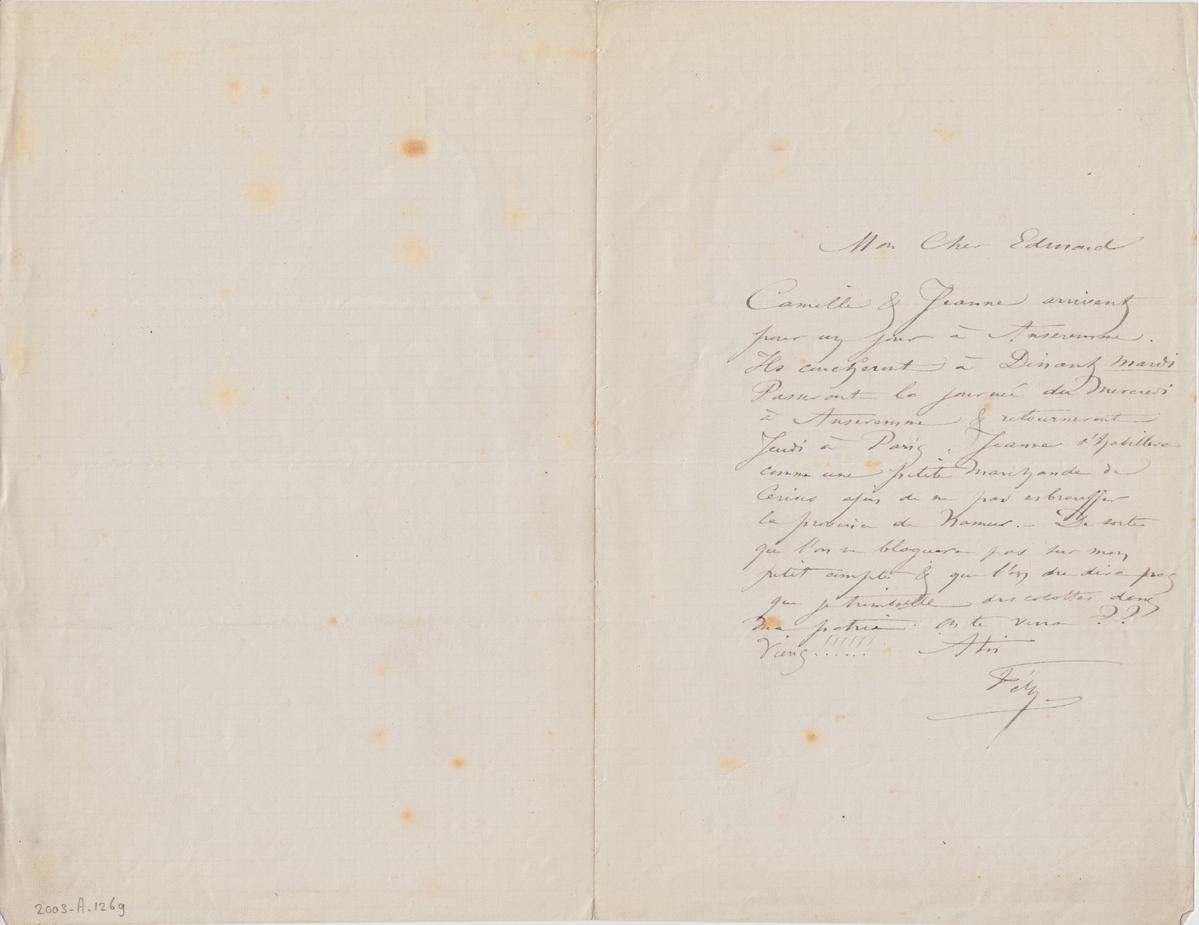 Mon Cher Edmond
Camille & Jeanne arrivent
pour un jour à Anseremme.
Ils coucheront à Dinant mardi
Passeront la journée du Mercredi
à Anseremme & retourneront
Jeudi à Paris. Jeanne s'habillera
comme une petite Marchande de
Cerises afin de ne pas esbrouffer
la province de Namur. – De sorte
que l'on ne blaguera pas sur mon
petit compte & que l'on ne dira pas
que je trimballe des cocottes dans
ma patrie. On te verra ??
Viens !!!!!!
Fély
2003-A.1269